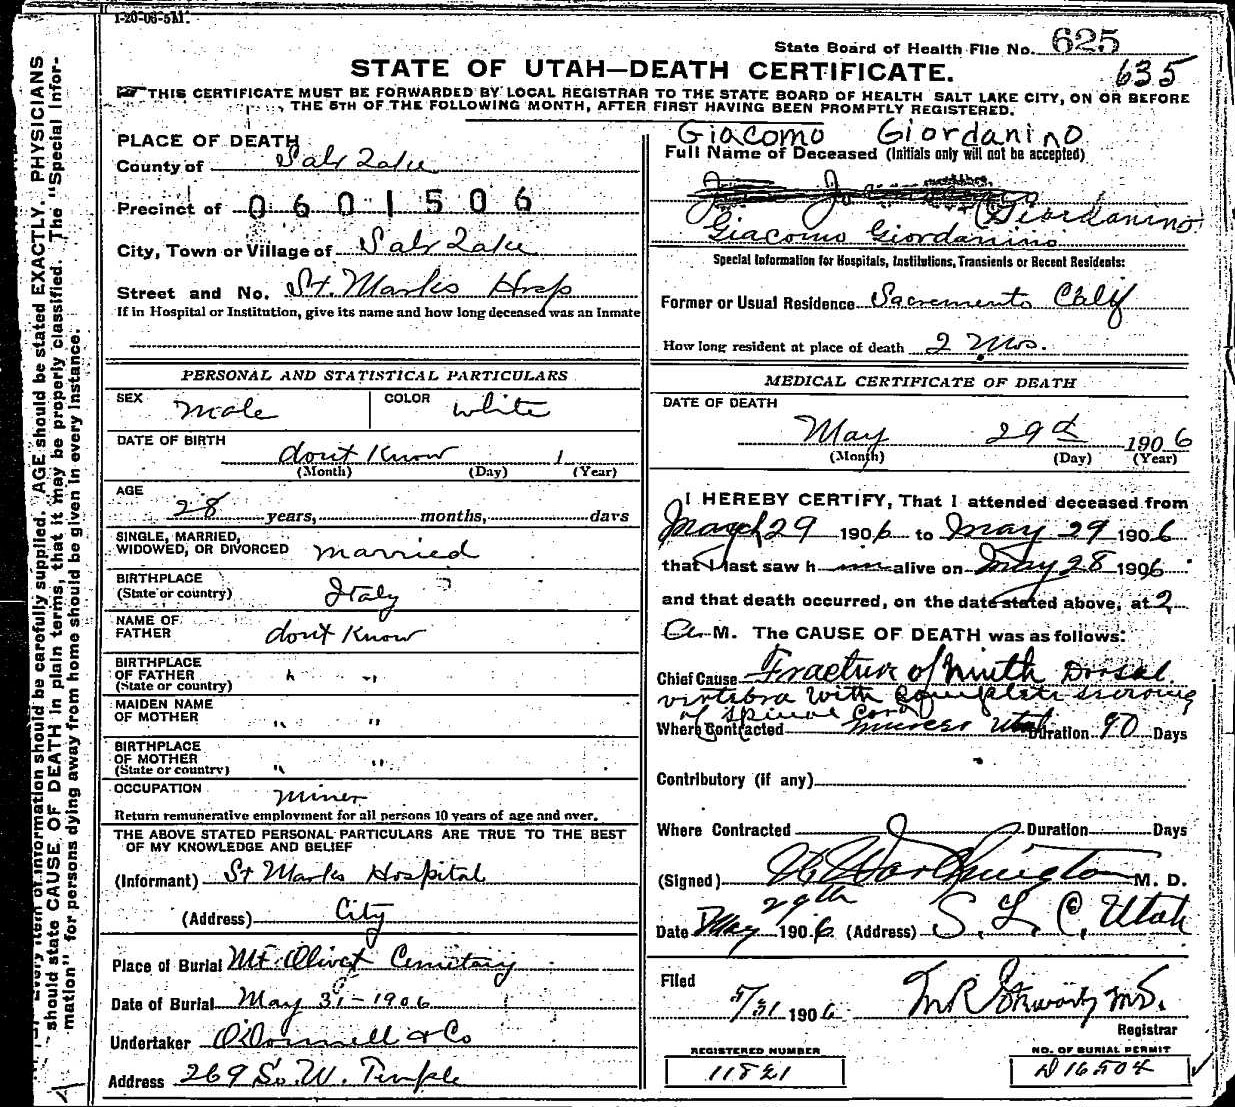 1-20-06-5M.
State Board of Health File No. 625
635
STATE OF UTAH—DEATH CERTIFICATE.
THIS CERTIFICATE MUST BE FORWARDED BY LOCAL REGISTRAR TO THE STATE BOARD OF HEALTH SALT LAKE CITY, ON OR BEFORE
THE 5TH OF THE FOLLOWING MONTH, AFTER FIRST HAVING BEEN PROMPTLY REGISTERED.
PLACE OF DEATH
County of Salt Lake
Precinct of 0601506
City, Town or Village of Salt Lake
Street and No. St. Marks Hosp
If in Hospital or Institution, give its name and how long deceased was an Inmate
Giacomo Giordanino
Full Name of Deceased (Initials only will not be accepted)
Giordanino
Giacomo Giordanino
Special Information for Hospitals, Institutions, Transients or Recent Residents:
Former or Usual Residence Sacramento Calif
How long resident at place of death 2 Mos.
PERSONAL AND STATISTICAL PARTICULARS
SEX Male COLOR White
DATE OF BIRTH
dont Know 1
(Month) (Day) (Year)
AGE
28 years, months, days
SINGLE, MARRIED,
WIDOWED, OR DIVORCED married
BIRTHPLACE
(State or country) Italy
NAME OF
FATHER dont Know
BIRTHPLACE
OF FATHER " "
(State or country)
MAIDEN NAME
OF MOTHER " "
BIRTHPLACE
OF MOTHER " "
(State or country)
OCCUPATION Miner
Return remunerative employment for all persons 10 years of age and over.
THE ABOVE STATED PERSONAL PARTICULARS ARE TRUE TO THE BEST
OF MY KNOWLEDGE AND BELIEF
(Informant) St Marks Hospital
(Address) City
Place of Burial Mt. Olivet Cemetary
Date of Burial May 31-1906
Undertaker O'Donnell & Co
Address 269 So. W. Temple
MEDICAL CERTIFICATE OF DEATH
DATE OF DEATH
May 29th 1906
(Month) (Day) (Year)
I HEREBY CERTIFY, That I attended deceased from
March 29 1906 to May 29 1906
that I last saw h im alive on May 28 1906
and that death occurred, on the date stated above, at 2
A. M. The CAUSE OF DEATH was as follows:
Chief Cause Fracture of Ninth Dorsal
vertebra with complete
of spinal cord
Where Contracted Utah Duration 90 Days
Contributory (if any)
Where Contracted Duration Days
(Signed) Worthington M. D.
Date May 29th 1906 (Address) S. L. C. Utah
Filed
5/31 1906 M.D.
Registrar
REGISTERED NUMBER
11821
NO. OF BURIAL PERMIT
D 16504
Every item of information should be carefully supplied. AGE should be stated EXACTLY. PHYSICIANS
should state CAUSE OF DEATH in plain terms, that it may be properly classified. The "Special Infor-
mation" for persons dying away from home should be given in every instance.